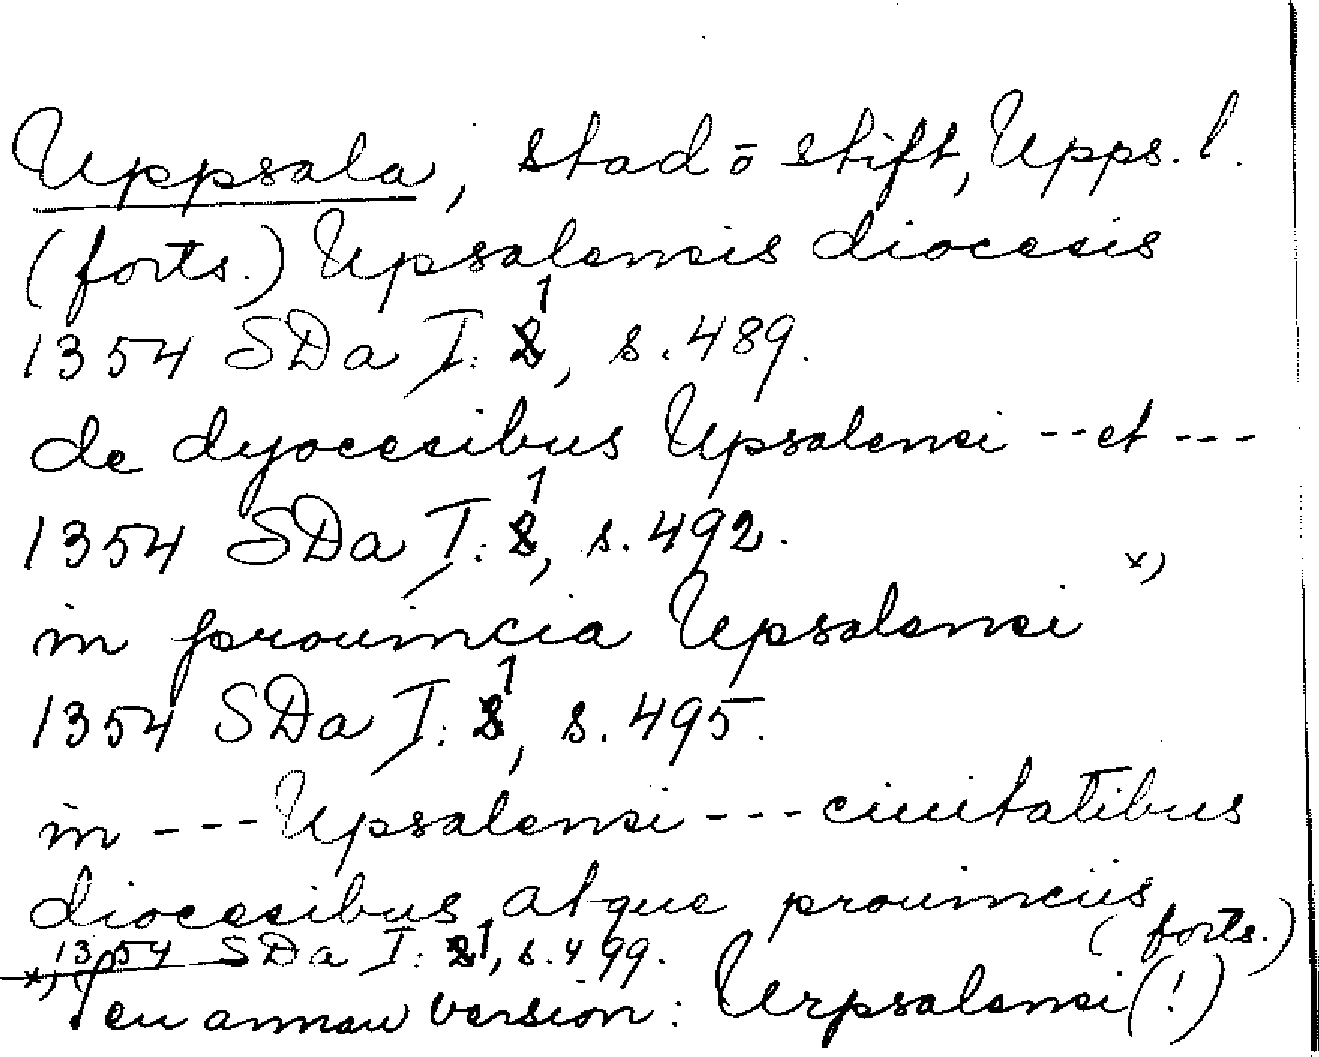 Uppsala, stad o stift, Upps. l.
(forts.) Upsalensis diocesis
1354 SDa I: 1, s. 489.
de dyocesibus Upsalensi -- et ---
1354 SDa I: 1, s. 492.
in prouincia Upsalensi x)
1354 SDa I: 1, s. 495.
in --- Upsalensi --- ciuitatibus
diocesibus atque prouinciis
1354 SDa I: 1, s. 499. (forts.)
x) I en annan version: Urpsalensi (!)